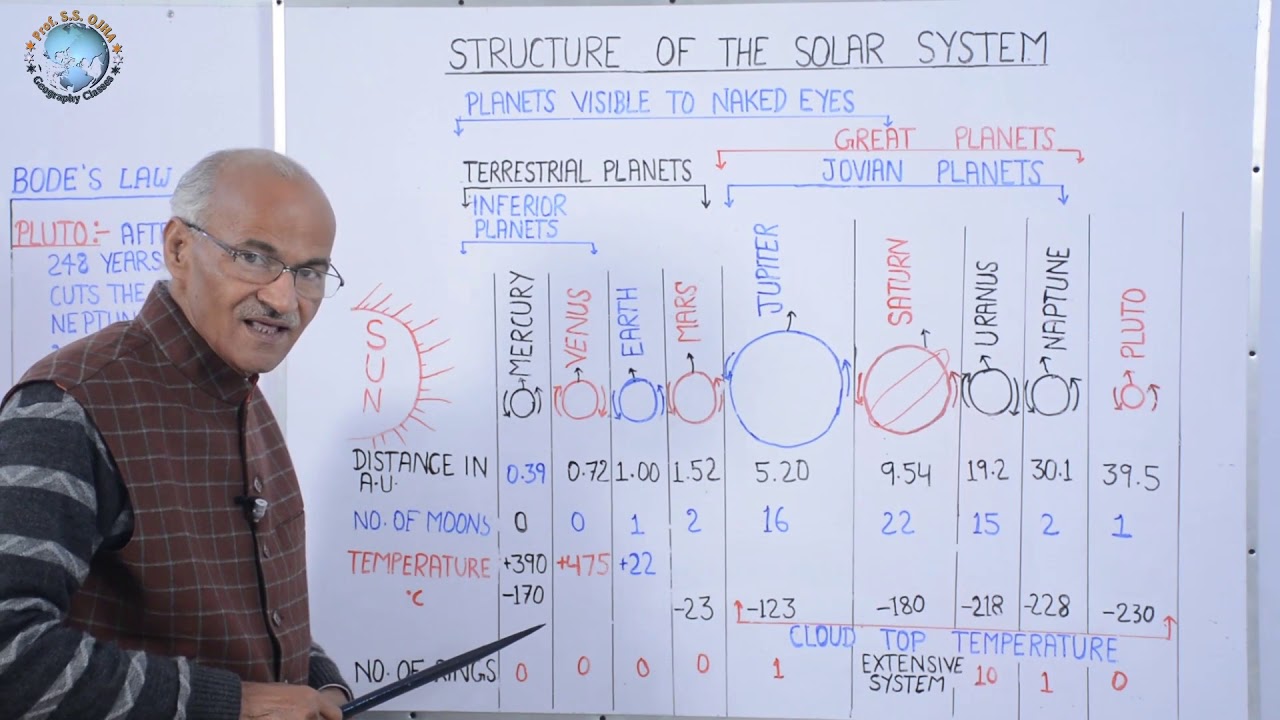 Prof. S.S. OJHA
Geography Classes
STRUCTURE OF THE SOLAR SYSTEM
PLANETS VISIBLE TO NAKED EYES
GREAT PLANETS
TERRESTRIAL PLANETS
JOVIAN PLANETS
INFERIOR
PLANETS
BODE'S LAW
PLUTO:- AFT
248 YEARS
CUTS THE
NEPTUN
SUN
MERCURY VENUS EARTH MARS JUPITER SATURN URANUS NAPTUNE PLUTO
DISTANCE IN A.U. 0.39 0.72 1.00 1.52 5.20 9.54 19.2 30.1 39.5
NO. OF MOONS 0 0 1 2 16 22 15 2 1
TEMPERATURE +390 +475 +22
°C -170 -23 -123 -180 -218 -228 -230
CLOUD TOP TEMPERATURE
NO. OF RINGS 0 0 0 0 1 EXTENSIVE SYSTEM 10 1 0